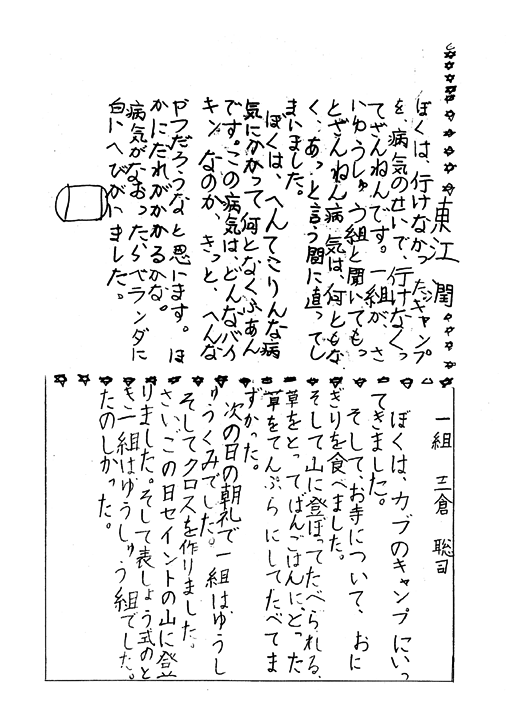 東江 潤
ぼくは、行けなかったキャンプ
を、病気のせいで、行けなくっ
てざんねんです。一組が、さ
いゆうしゅう組と聞いてもっ
とざんねん病気は、何ともな
く、あっと言う間に直ってし
まいました。
ぼくは、へんてこりんな病
気にかかって何となくふあん
です。この病気は、どんなバイ
キンなのか、きっと、へんな
やつだろうなと思います。ほ
かにだれがかかるかな。
病気がなおったらベランダに
白いへびがいました。
一組 三倉 聡司
ぼくは、カブのキャンプにいっ
てきました。
そして、お寺について、おに
ぎりを食べました。
そして山に登ぼってたべられる
草をとってばんごはんに、とった
草をてんぷらにしてたべてま
ずかった。
次の日の朝礼で一組はゆうし
ゅうくみでした。
そしてクロスを作りました。
さいごの日セイントの山に登
りました。そして表しょう式のと
き一組はゆうしゅう組でした。
たのしかった。